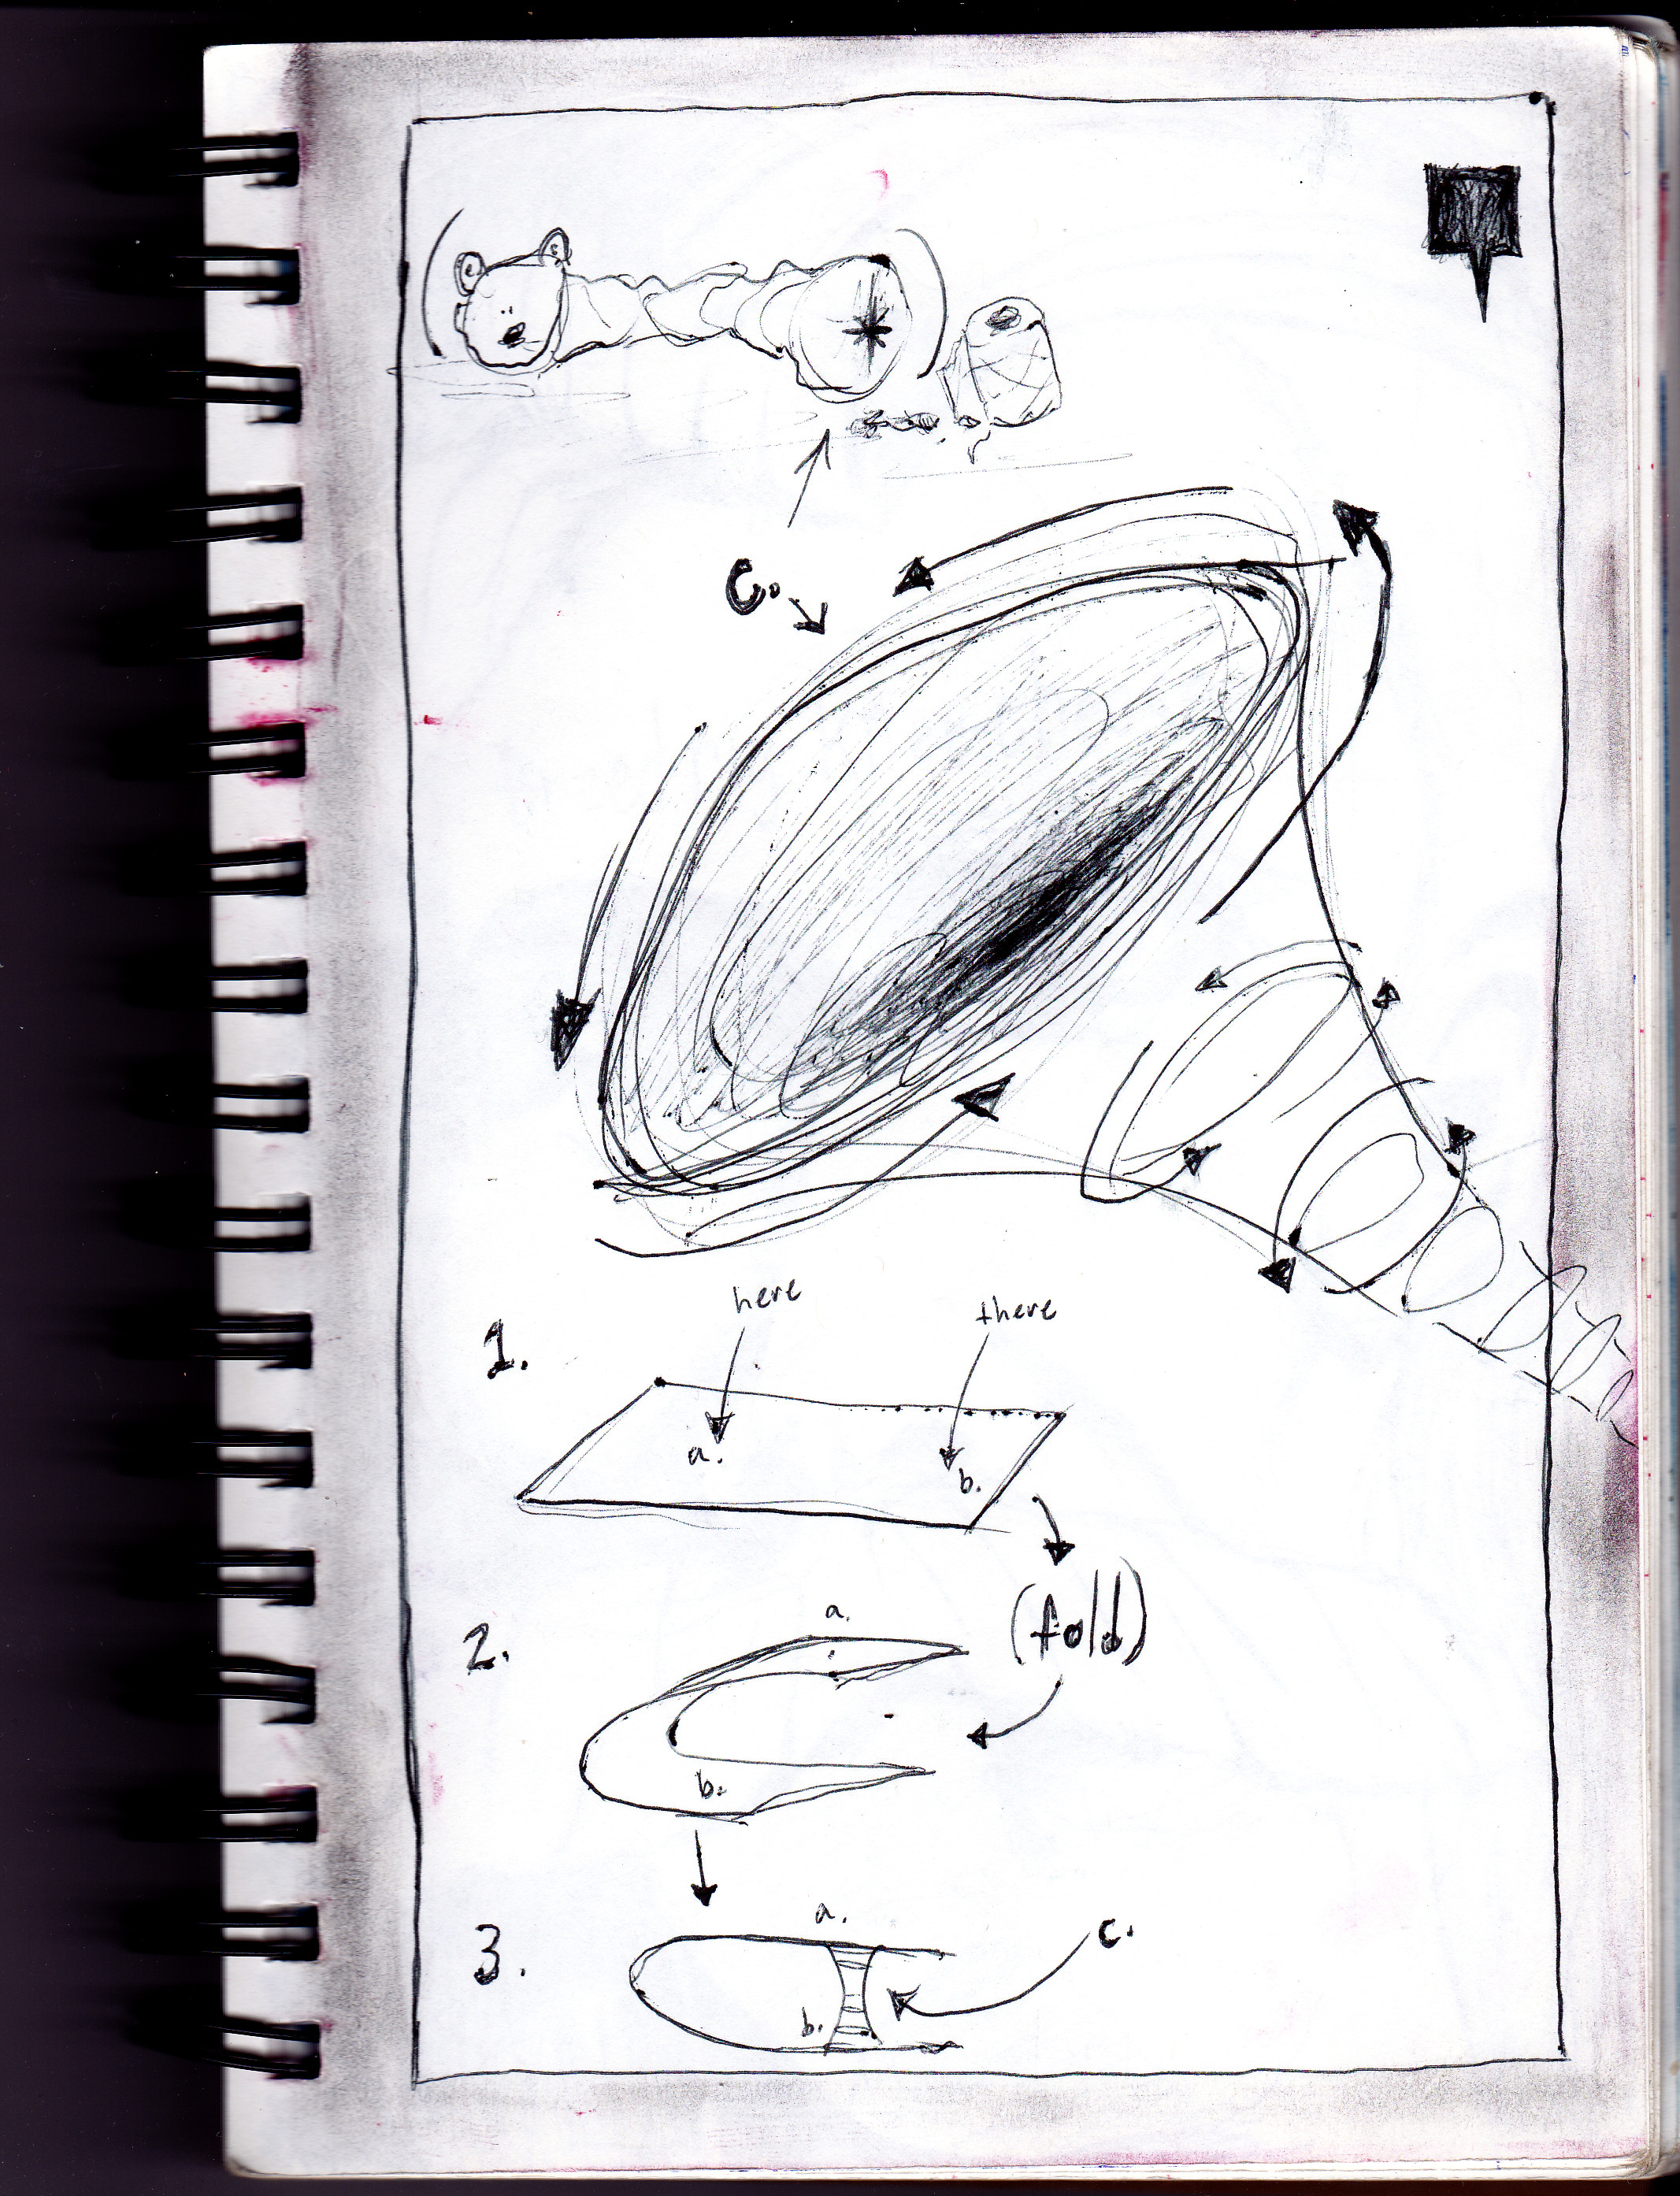 c.
here
there
1.
a.
b.
(fold)
2.
a.
b.
3.
a.
c.
b.